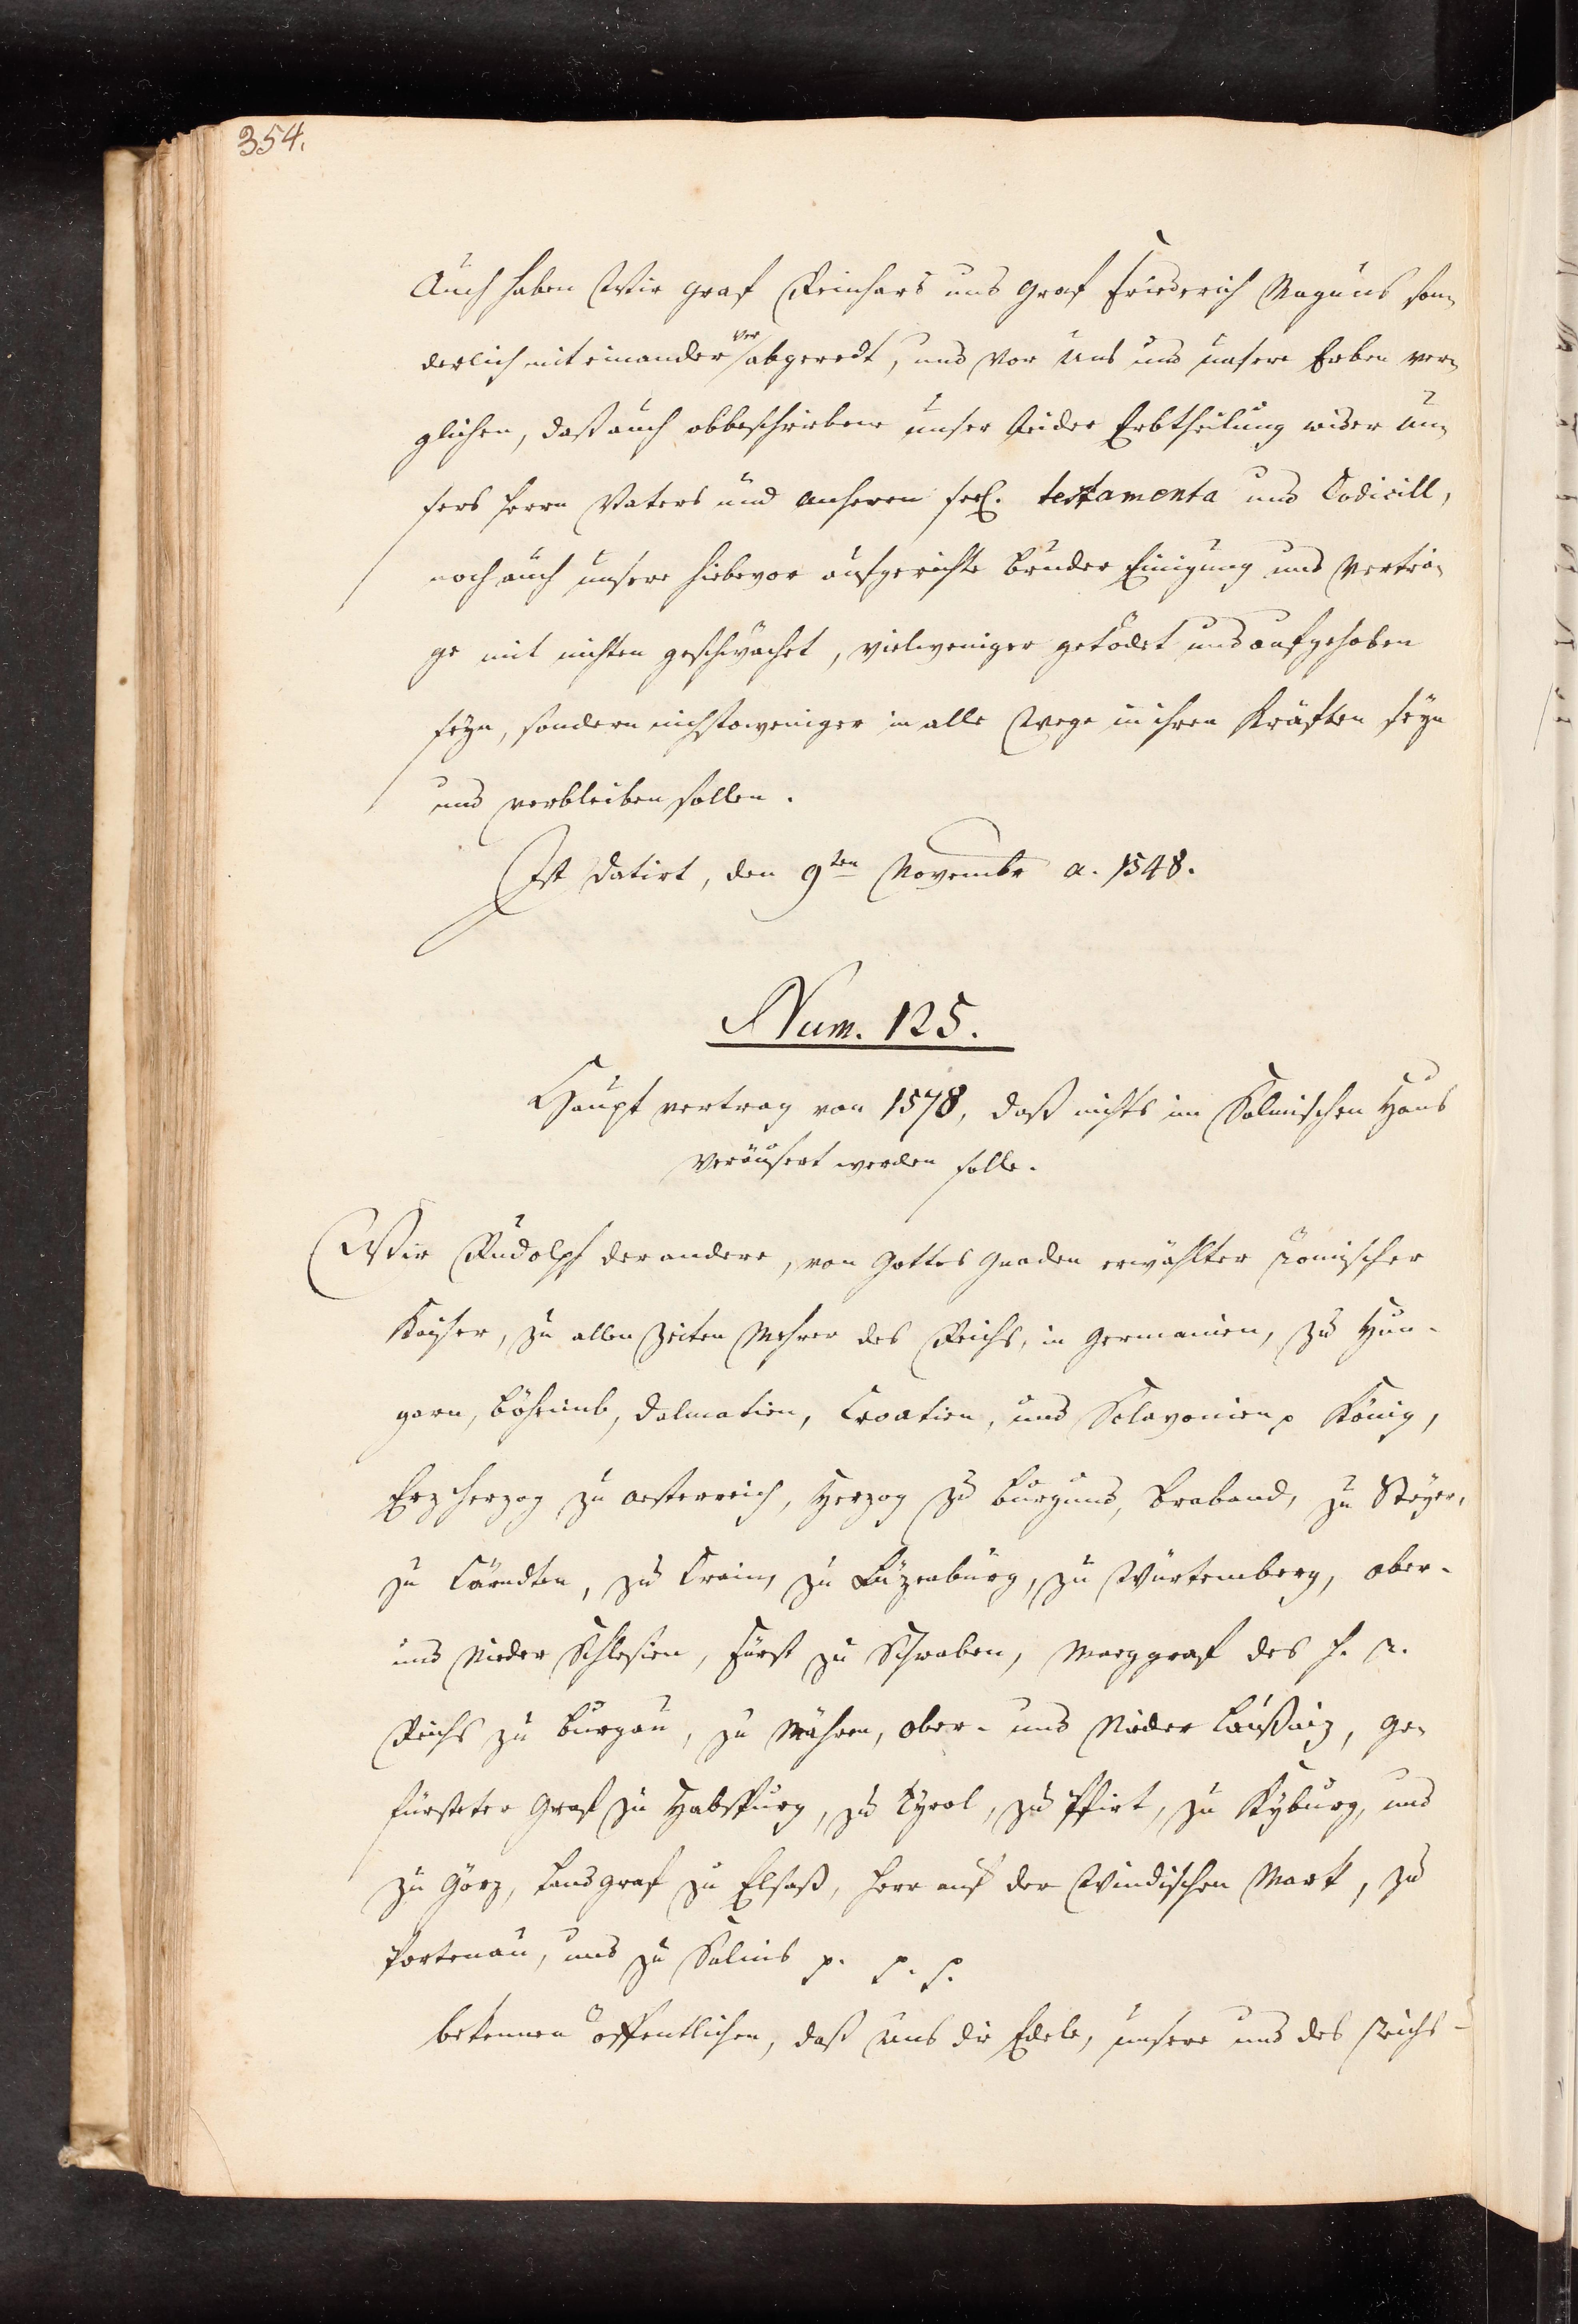 354.
Auch haben Wir Graf Reinhard und Graf Friederich Magnus son-
derlich mit einander verabgeredt, und vor Uns und unsere Erben ver-
glichen, daß auch obbeschriebene unser beider Erbtheilung wider un-
sers Herrn Vaters und Anherrn seel. testamenta und Codicill,
noch auch unsere hiebevor aufgerichte Brüder Einigung und Verträ-
ge mit nichten geschwächet, vielweniger getödet und aufgehoben
seyn, sondern nichstoweniger in alle Wege in ihren Kräften seyn
und verbleiben sollen.
Ist datirt, den 9ten Novembr a. 1548.
Num. 125.
Haupt vertrag von 1578, daß nichts im Solmischen Haus
veräusert werden solle.
Wir Rudolph der andere, von Gottes Gnaden erwählter Römischer
Kayser, zu allen Zeiten Mehrer des Reichs, in Germanien, zu Hun-
garn, Böheimb, Dalmatien, Croatien, und Sclavonien p König,
Erzherzog zu Oesterreich, Herzog zu Burgund, Braband, zu Steyer,
zu Kärndten, zu Crain, zu Lüzenburg, zu Würtemberg, Ober-
und Nieder Schlesien, Fürst zu Schwaben, Marggraf des H. R.
Reichs zu Burgau, zu Mähren, Ober- und Nieder Laußniz, ge-
fürsteter Graf zu Habspurg, zu Tyrol, zu Pfirt, zu Kyburg, und
zu Görz, Landgraf zu Elsaß, Herr auf der Windischen Mark, zu
Portenau, und zu Salins p. p. p.
bekennen öffentlichen, daß Uns die Edele, unsere und des Reichs-